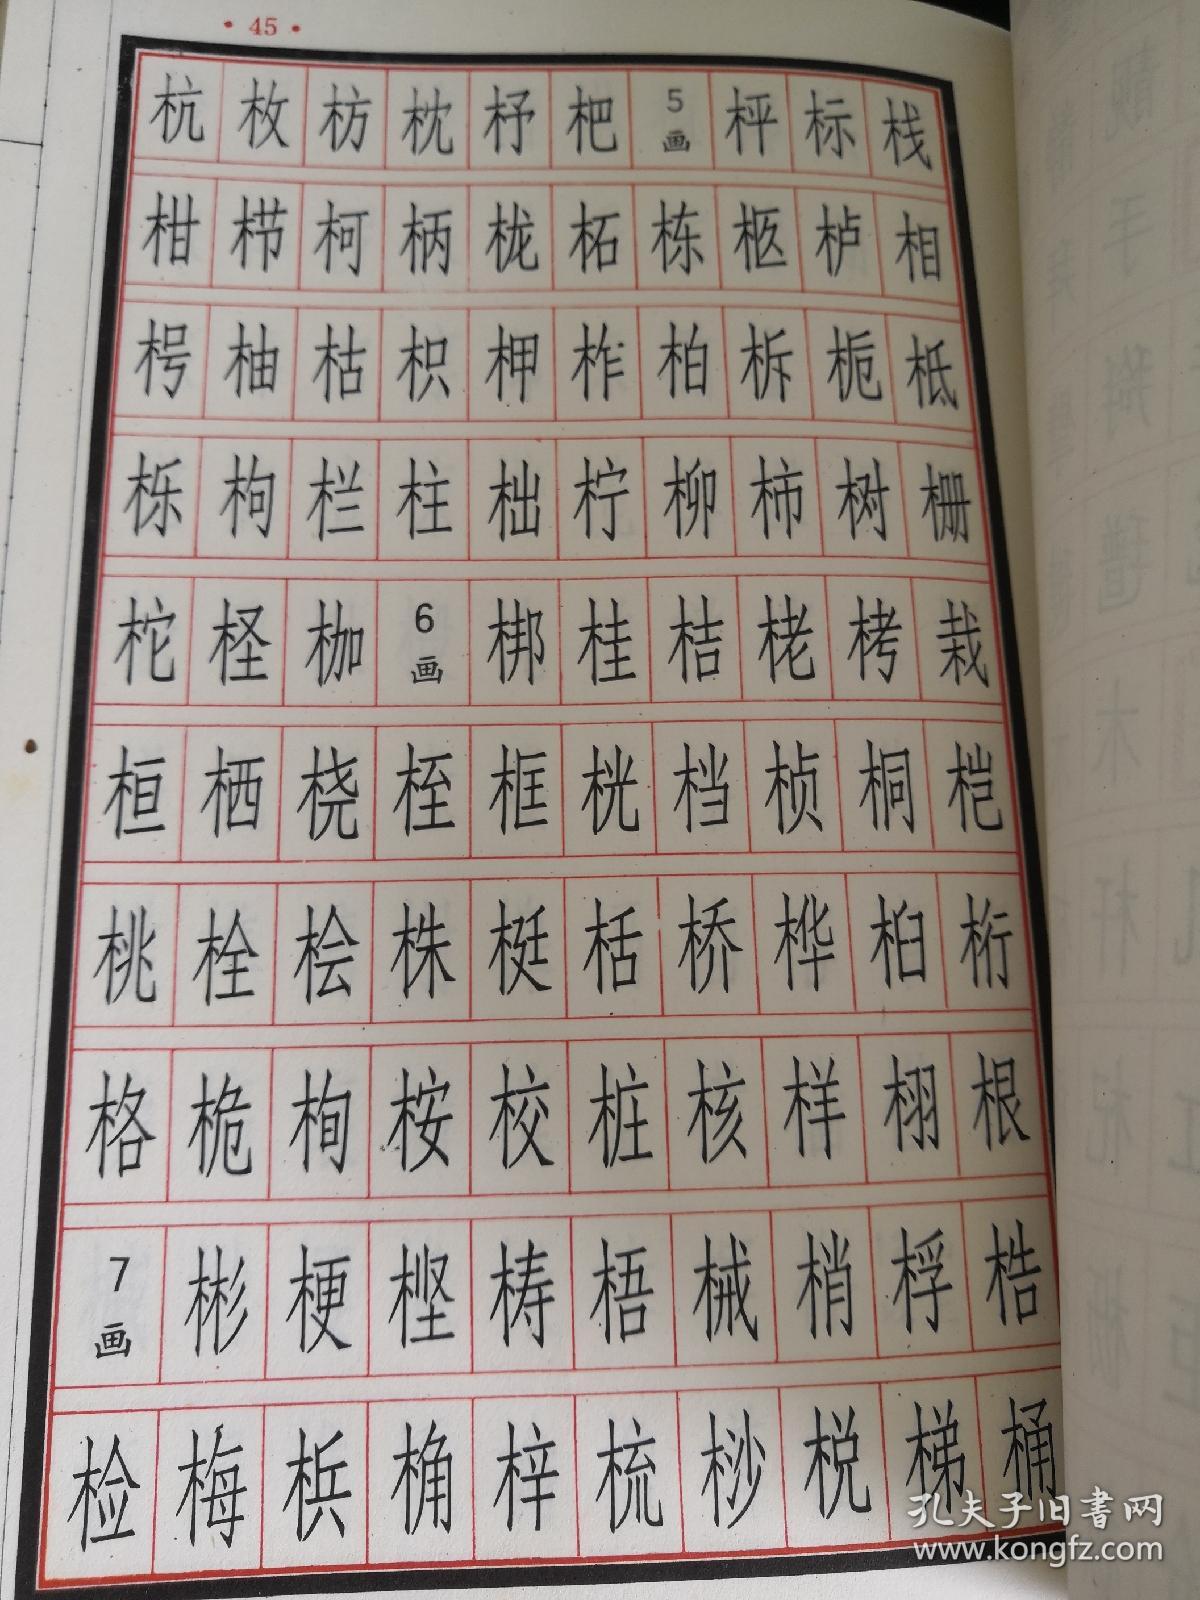 • 45 •
杭 枚 枋 枕 杼 杷 5画 枰 标 栈
柑 栉 柯 柄 栊 柘 栋 柩 栌 相
枵 柚 枯 枳 柙 柞 柏 柝 栀 柢
栎 枸 栏 柱 柮 柠 柳 柿 树 栅
柁 柽 枷 6画 梆 桂 桔 栳 栲 栽
桓 栖 桡 桎 框 桄 档 桢 桐 桤
桃 栓 桧 株 梃 栝 桥 桦 桕 桁
格 桅 栒 桉 校 桩 核 样 栩 根
7画 彬 梗 㭴 梼 梧 械 梢 桴 梏
检 梅 梹 桷 梓 梳 桫 棁 梯 桶
孔夫子旧书网
www.kongfz.com